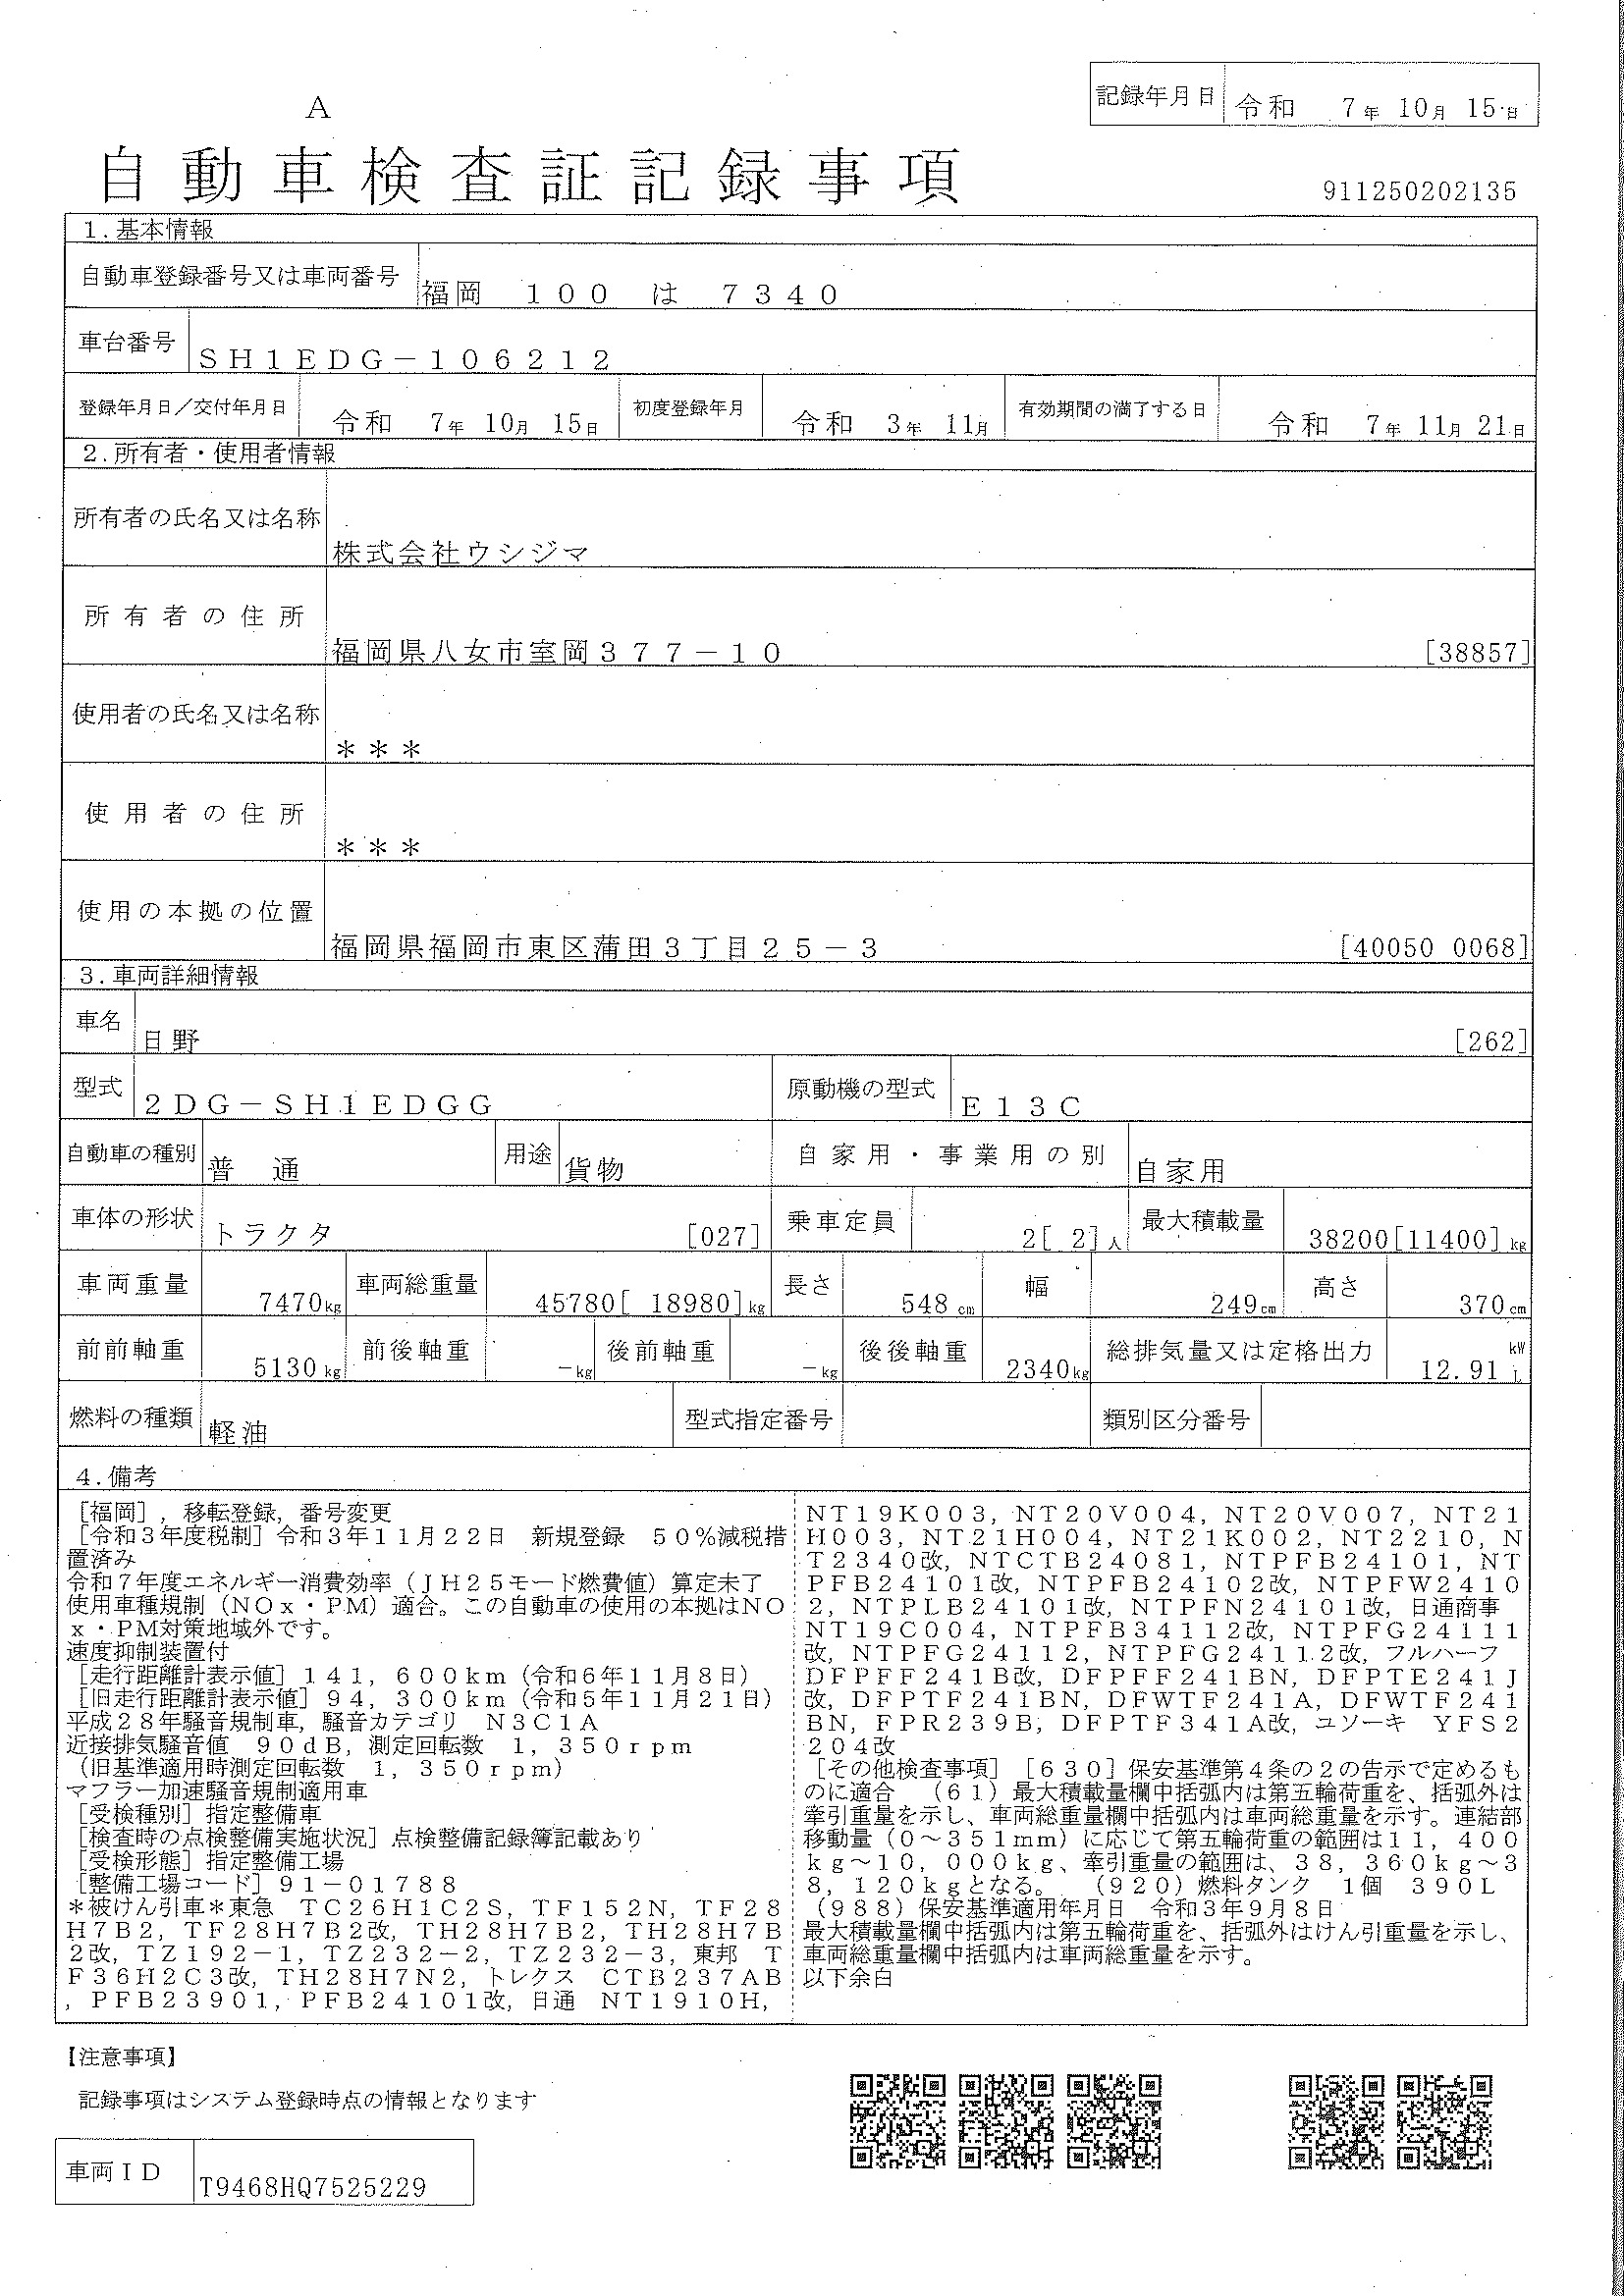 A
記録年月日 令和 7年 10月 15日
自動車検査証記録事項
911250202135
1.基本情報
自動車登録番号又は車両番号 福岡 100 は 7340
車台番号 SH1EDG-106212
登録年月日/交付年月日 令和 7年 10月 15日 初度登録年月 令和 3年 11月 有効期間の満了する日 令和 7年 11月 21日
2.所有者・使用者情報
所有者の氏名又は名称 株式会社ウシジマ
所有者の住所 福岡県八女市室岡377-10 [38857]
使用者の氏名又は名称 ***
使用者の住所 ***
使用の本拠の位置 福岡県福岡市東区蒲田3丁目25-3 [40050 0068]
3.車両詳細情報
車名 日野 [262]
型式 2DG-SH1EDGG 原動機の型式 E13C
自動車の種別 普通 用途 貨物 自家用・事業用の別 自家用
車体の形状 トラクタ [027] 乗車定員 2[ 2]人 最大積載量 38200[11400]kg
車両重量 7470kg 車両総重量 45780[ 18980]kg 長さ 548cm 幅 249cm 高さ 370cm
前前軸重 5130kg 前後軸重 -kg 後前軸重 -kg 後後軸重 2340kg 総排気量又は定格出力 12.91 kW L
燃料の種類 軽油 型式指定番号 類別区分番号
4.備考
[福岡],移転登録,番号変更
[令和3年度税制]令和3年11月22日 新規登録 50%減税措
置済み
令和7年度エネルギー消費効率(JH25モード燃費値)算定未了
使用車種規制(NOx・PM)適合。この自動車の使用の本拠はNO
x・PM対策地域外です。
速度抑制装置付
[走行距離計表示値]141,600km(令和6年11月8日)
[旧走行距離計表示値]94,300km(令和5年11月21日)
平成28年騒音規制車,騒音カテゴリ N3C1A
近接排気騒音値 90dB,測定回転数 1,350rpm
(旧基準適用時測定回転数 1,350rpm)
マフラー加速騒音規制適用車
[受検種別]指定整備車
[検査時の点検整備実施状況]点検整備記録簿記載あり
[受検形態]指定整備工場
[整備工場コード]91-01788
*被けん引車*東急 TC26H1C2S,TF152N,TF28
H7B2,TF28H7B2改,TH28H7B2,TH28H7B
2改,TZ192-1,TZ232-2,TZ232-3,東邦 T
F36H2C3改,TH28H7N2,トレクス CTB237AB
,PFB23901,PFB24101改,日通 NT1910H,
NT19K003,NT20V004,NT20V007,NT21
H003,NT21H004,NT21K002,NT2210,N
T2340改,NTCTB24081,NTPFB24101,NT
PFB24101改,NTPFB24102改,NTPFW2410
2,NTPLB24101改,NTPFN24101改,日通商事
NT19C004,NTPFB34112改,NTPFG24111
改,NTPFG24112,NTPFG24112改,フルハーフ
DFPFF241B改,DFPFF241BN,DFPTE241J
改,DFPTF241BN,DFWTF241A,DFWTF241
BN,FPR239B,DFPTF341A改,ユソーキ YFS2
204改
[その他検査事項][630]保安基準第4条の2の告示で定めるも
のに適合 (61)最大積載量欄中括弧内は第五輪荷重を、括弧外は
牽引重量を示し、車両総重量欄中括弧内は車両総重量を示す。連結部
移動量(0~351mm)に応じて第五輪荷重の範囲は11,400
kg~10,000kg、牽引重量の範囲は、38,360kg~3
8,120kgとなる。 (920)燃料タンク 1個 390L
(988)保安基準適用年月日 令和3年9月8日
最大積載量欄中括弧内は第五輪荷重を、括弧外はけん引重量を示し、
車両総重量欄中括弧内は車両総重量を示す。
以下余白
【注意事項】
記録事項はシステム登録時点の情報となります
車両ID T9468HQ7525229